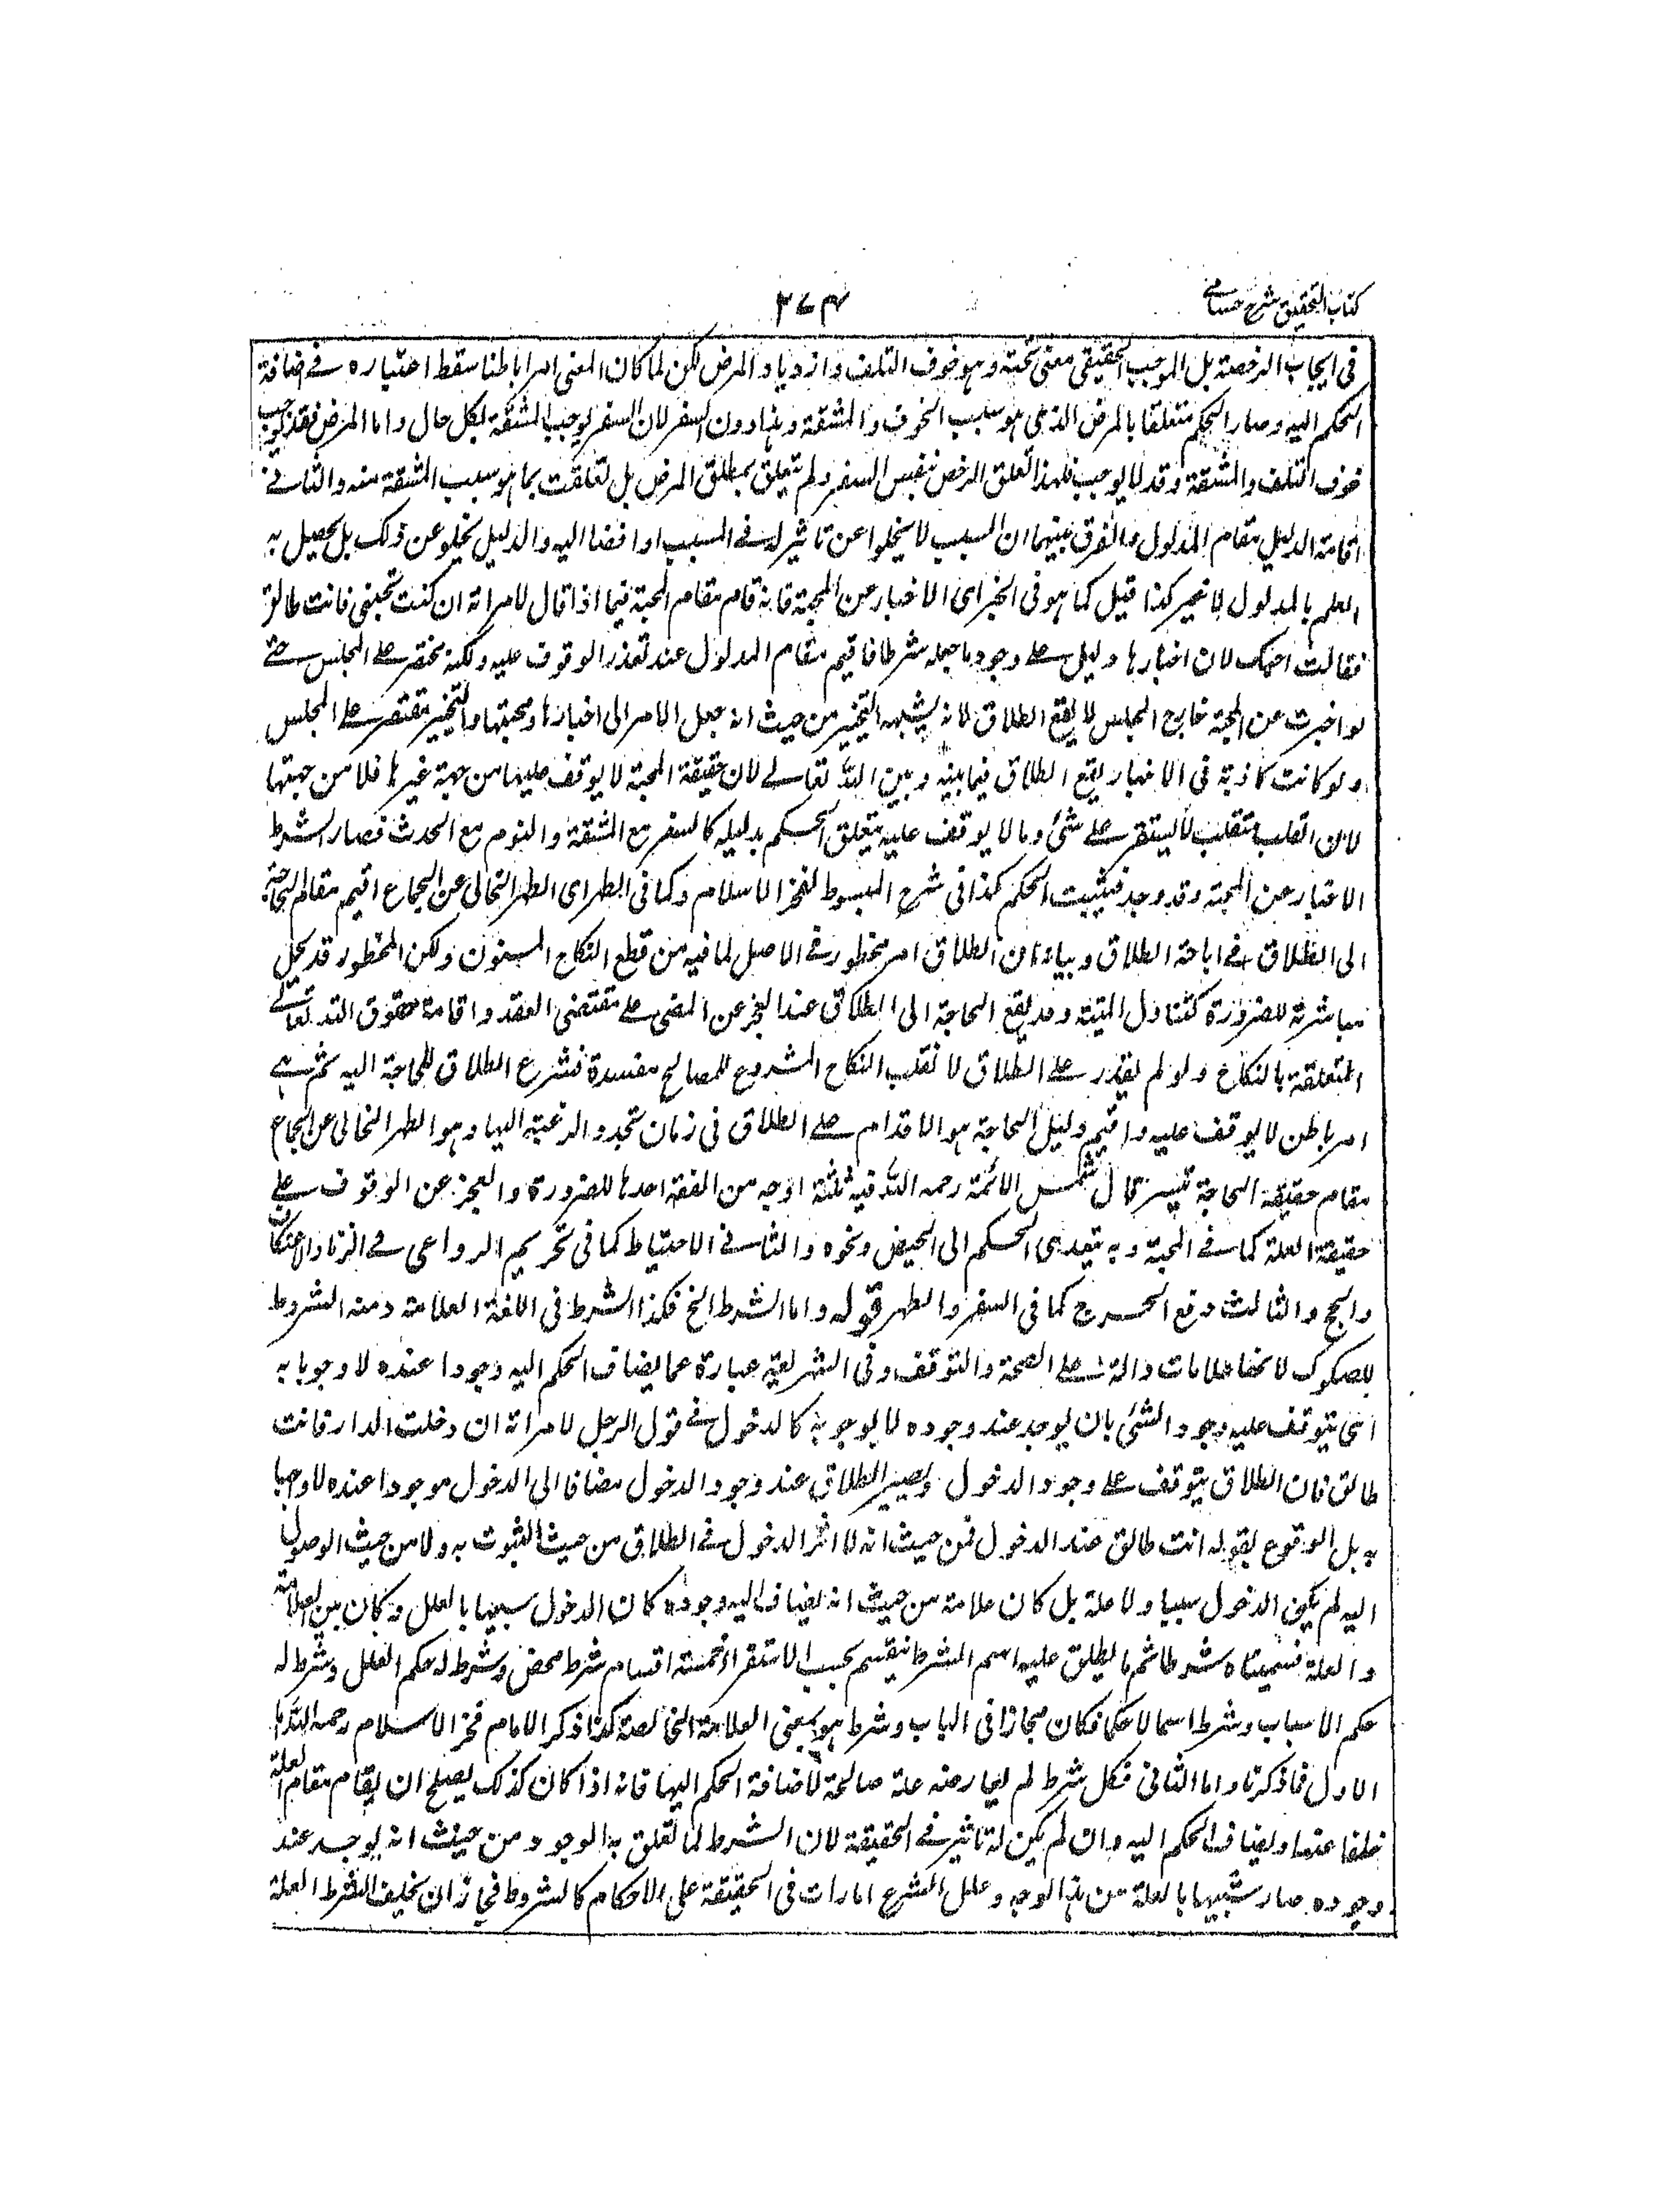 كتاب التحقيق شرح حسامي
٣٧٤
فى ايجاب الرخصة بل الموجب الحقيقى معنى تحته وهو خوف التلف وازدياد المرض لكن لما كان المعنى امرا باطنا سقط اعتباره فى اضافة
الحكم اليه وصار الحكم متعلقا بالمرض الذى هو سبب الخوف والمشقة وهذا دون السفر لان السفر يوجب المشقة بكل حال واما المرض فقد يوجب
خوف التلف والمشقة وقد لا يوجب فلهذا تعلق الرخص بنفس السفر ولم يتعلق بمطلق المرض بل تعلقت بما هو سبب المشقة منه والثانى
اقامة الدليل مقام المدلول والفرق بينهما ان السبب لا يخلوا عن تاثير له فى المسبب او افضا اليه والدليل يخلو عن ذلك بل يحصل به
العلم بالمدلول لا غير كذا قيل كما هو فى الخبر اى الاخبار عن المحبة فانه قام مقام المحبة فيما اذا قال لامراته ان كنت تحبنى فانت طالق
فقالت احبك لان اخبارها دليل على وجود ما جعله شرطا فاقيم مقام المدلول عند تعذر الوقوف عليه ولكنه مختصر على المجلس حتى
لو اخبرت عن المحبة خارج المجلس لا يقع الطلاق لانه يشبه التخيير من حيث انه جعل الامر الى اخبارها ومحبتها والتخيير مقتصر على المجلس
ولو كانت كاذبة فى الاخبار يقع الطلاق فيما بينه وبين الله تعالى لان حقيقة المحبة لا يوقف عليها من جهة غيرها فلا من جهتها
لان القلب متقلب لا يستقر على شئ وما لا يوقف عليه يتعلق الحكم بدليله كالسفر مع المشقة والنوم مع الحدث فصار الشرط
الاخبار عن المحبة وقد وجد فيثبت الحكم كذا فى شرح المبسوط لفخر الاسلام وكما فى الطهر اى الطهر الخالى عن الجماع اقيم مقام الحاجة
الى الطلاق فى اباحة الطلاق وبيانه ان الطلاق امر محظور فى الاصل لما فيه من قطع النكاح المسنون ولكن المحظور قد يحل
مباشرته للضرورة كتناول الميتة وقد يقع الحاجة الى الطلاق عند العجز عن المضى على مقتضى العقد واقامة حقوق الله تعالى
المتعلقة بالنكاح ولو لم يقدر على الطلاق لانقلب النكاح المشروع للمصالح مفسدة فشرع الطلاق للحاجة اليه ثم هى
امر باطن لا يوقف عليه واقيم دليل الحاجة هو الاقدام على الطلاق فى زمان تجدد الرغبة اليها وهو الطهر الخالى عن الجماع
مقام حقيقة الحاجة تيسيرا قال شمس الائمة رحمه الله فيه ثلثة اوجه من الفقه احدها للضرورة والعجز عن الوقوف على
حقيقة العلة كما فى المحبة وبه يتعدى الحكم الى الحيض ونحوه والثانى الاحتياط كما فى تحريم الدواعى فى الزنا والاعتكاف
والحج والثالث دفع الحرج كما فى السفر والطهر قوله واما الشرط الخ فكذا الشرط فى اللغة العلامة ومنه الشروط
للصكوك لانها علامات دالة على الصحة والتوقف وفى الشريعة عبارة عما يضاف الحكم اليه وجودا عنده لا وجوبا به
اى يتوقف عليه وجود الشئ بان يوجد عند وجوده لا بوجوبه كالدخول فى قول الرجل لامراته ان دخلت الدار فانت
طالق فان الطلاق يتوقف على وجود الدخول ويصير الطلاق عند وجود الدخول مضافا الى الدخول موجودا عنده لا واجبا
به بل الوقوع بقوله انت طالق عند الدخول فمن حيث انه لا اثر الدخول فى الطلاق من حيث الثبوت به ولا من حيث الوصول
اليه لم يكن الدخول سببا ولا علة بل كان علامة من حيث انه يضاف اليه وجوده كان الدخول شبيها بالعلل وكان بين العلامة
والعلة فسميناه شرطا ثم ما يطلق عليه اسم الشرط ينقسم بحسب الاستقراء خمسة اقسام شرط محض وشرط له حكم العلل وشرط له
حكم الاسباب وشرط اسما لا حكما فكان مجازا فى الباب وشرط هو بمعنى العلامة الخالصة كذا ذكر الامام فخر الاسلام رحمه الله اما
الاول فما ذكرنا واما الثانى فكل شرط لم يعارضه علة صالحة لاضافة الحكم اليها فانه اذا كان كذلك يصلح ان يقام مقام العلة
خلفا عنها ويضاف الحكم اليه وان لم يكن له تاثير فى الحقيقة لان الشرط لما تعلق به الوجود من حيث انه يوجد عند
وجوده صار شبيها بالعلة من هذا الوجه وعلل الشرع امارات فى الحقيقة على الاحكام كالشروط فجاز ان يخلف الشرط العلة